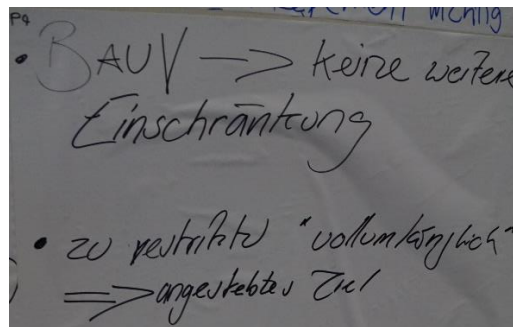 P4
wichtig
• BAUV —> keine weitere
Einschränkung
• zu restriktiv "vollumfänglich"
=> angestrebtes Ziel